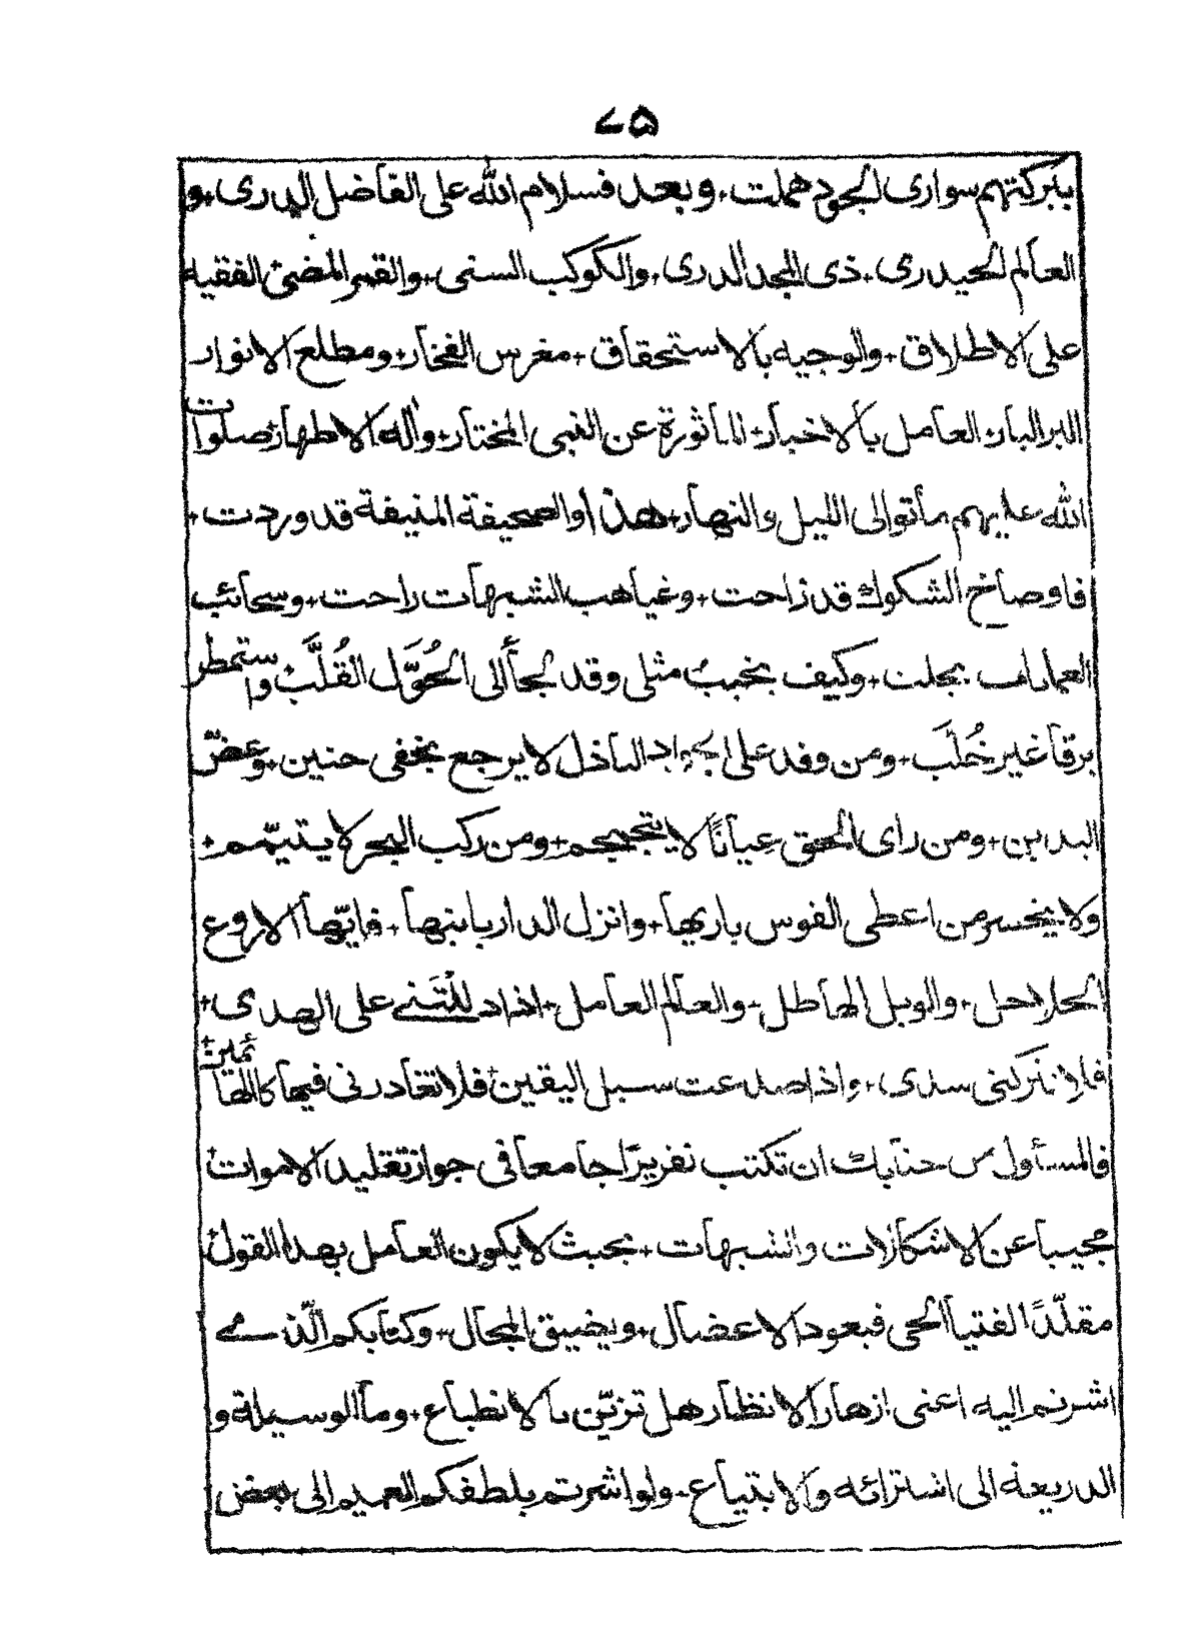 ٧٥
ببركتهم سوارى الجود هملت۔ وبعد فسلام الله على الفاضل البدرى۔ و
العالم الحيدرى۔ ذى المجد الدرى۔ والكوكب السنى۔ والقمر المضئ الفقيه
على الاطلاق۔ والوجيه بالاستحقاق۔ مغرس الفخار۔ ومطلع الانوار
البر البار۔ العامل بالاخبار۔ الماثورة عن النبى المختار۔ واٰله الاطهار۔ صلوات
الله عليهم ماتوالى الليل والنهار۔ هذا والصحيفة المنيفة قد وردت۔
فاوصاخ الشكوك قد زاحت۔ وغياهب الشبهات راحت۔ وسحائب
بجلت۔ وكيف يخيب مثلى وقد لجأ الى الحُوَّل القُلَّب۔ واستمطر
برقا غير خُلَّب۔ ومن وفد على الجواد الباذل لا يرجع بخفى حنين۔ وعضّ
اليدين۔ ومن راى الحق عيانًا لا يتجمجم۔ ومن ركب البحر لا يتيمّم۔
ولا يخسر من اعطى القوس باريها۔ وانزل الدار بانيها۔ فايّها الاروع
الحلاحل۔ والوبل الهاطل۔ والعالم العامل۔ اذا دللتَنے على الهدى۔
فلا تتركنى سدى۔ واذا صدعت سبل اليقين۔ فلا تغادرنى فيها كالهائمين۔
فالمسئول من جنابك ان تكتب تقريرًا جامعا فى جواز تقليد الاموات۔
مجيبا عن الاشكالات والشبهات۔ بحيث لا يكون العامل بهذا القول۔
مقلّدًا لفتيا الحى فيعود الاعضال۔ ويضيق المجال۔ وكتابكم الّذے
اشرتم اليه اعنى ازهار الانظار هل تزيّن بالانطباع۔ وما الوسيلة و
الذريعة الى اشترائه والابتياع۔ ولو اشرتم بلطفكم العميم الى بعض